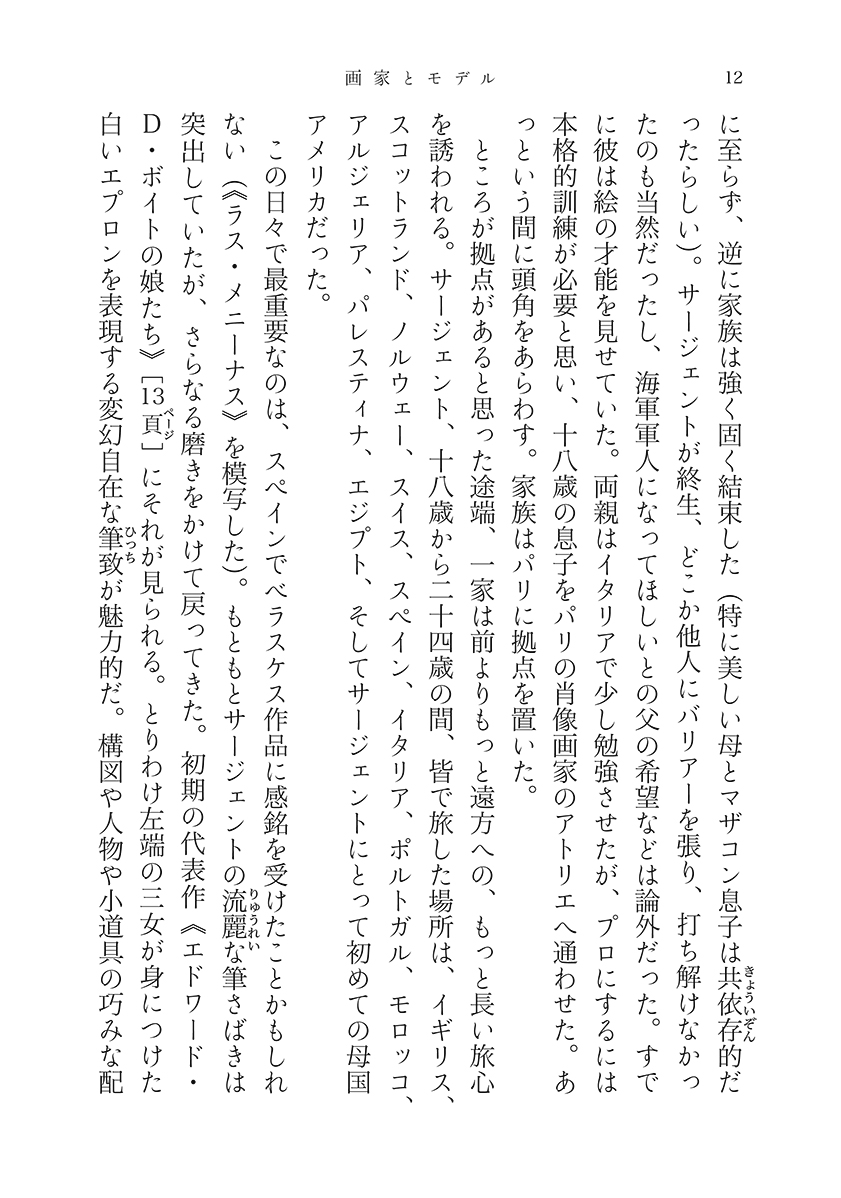 画家とモデル
12
に至らず、逆に家族は強く固く結束した(特に美しい母とマザコン息子は共依存的だ
きょういぞん
ったらしい)。サージェントが終生、どこか他人にバリアーを張り、打ち解けなかっ
たのも当然だったし、海軍軍人になってほしいとの父の希望などは論外だった。すで
に彼は絵の才能を見せていた。両親はイタリアで少し勉強させたが、プロにするには
本格的訓練が必要と思い、十八歳の息子をパリの肖像画家のアトリエへ通わせた。あ
っという間に頭角をあらわす。家族はパリに拠点を置いた。
ところが拠点があると思った途端、一家は前よりもっと遠方への、もっと長い旅心
を誘われる。サージェント、十八歳から二十四歳の間、皆で旅した場所は、イギリス、
スコットランド、ノルウェー、スイス、スペイン、イタリア、ポルトガル、モロッコ、
アルジェリア、パレスティナ、エジプト、そしてサージェントにとって初めての母国
アメリカだった。
この日々で最重要なのは、スペインでベラスケス作品に感銘を受けたことかもしれ
ない(《ラス・メニーナス》を模写した)。もともとサージェントの流麗な筆さばきは
りゅうれい
突出していたが、さらなる磨きをかけて戻ってきた。初期の代表作《エドワード・
D・ボイトの娘たち》[13頁]にそれが見られる。とりわけ左端の三女が身につけた
ページ
白いエプロンを表現する変幻自在な筆致が魅力的だ。構図や人物や小道具の巧みな配
ひっち